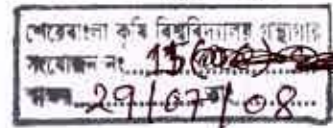 শেরেবাংলা কৃষি বিশ্ববিদ্যালয় গ্রন্থাগার
সংযোজন নং 15
29/07/08